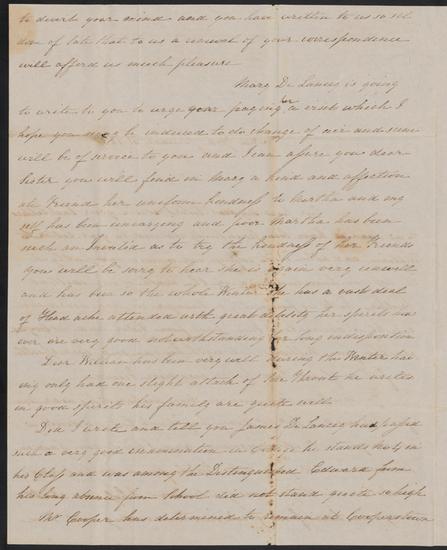 to divert your mind and you have written to us so sel
dom of late that to us a renewal of your correspondence
will afford us much pleasure
Mary De Lancey is going
to write to you to urge your paying her a visit which I
hope you may be induced to do change of air and scene
will be of service to you and I can assure you dear
Sister you will find in Mary a kind and affection
ate Friend her uniform kindness to Martha and my
self has been unvarying and poor Martha has been
such an Invalid as to try the kindness of her Friends
you will be sorry to hear she is again very unwell
and has been so the whole Winter She has a vast deal
of Head ache attended with great debility her spirits how
ever are very good notwithstanding her long indisposition
Dear William has been very well during the Winter hav
ing only had one slight attack of the Throat he writes
in good spirits his family are quite well
Did I write and tell you James De Lancey had passed
such a very good examination in he stands in
his Class and was among the Distinguished Edward from
his long absence from School did not stand quite so high
Mr Cooper has determined to remain at Cooperstown